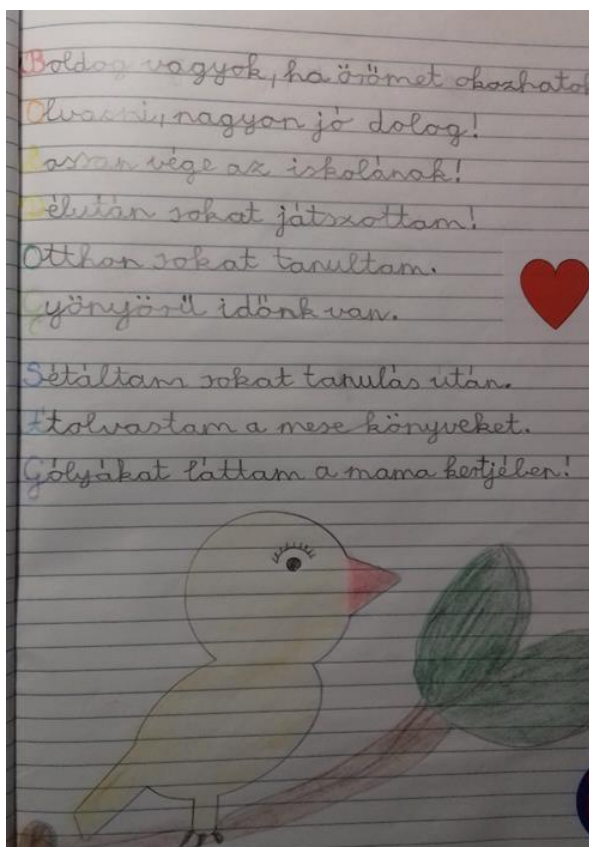 Boldog vagyok, ha örömet okozhatok
Olvasni, nagyon jó dolog!
Lassan vége az iskolának!
Délután sokat játszottam!
Otthon sokat tanultam.
Gyönyörű időnk van.
Sétáltam sokat tanulás után.
Átolvastam a mese könyveket.
Gólyákat láttam a mama kertjében!